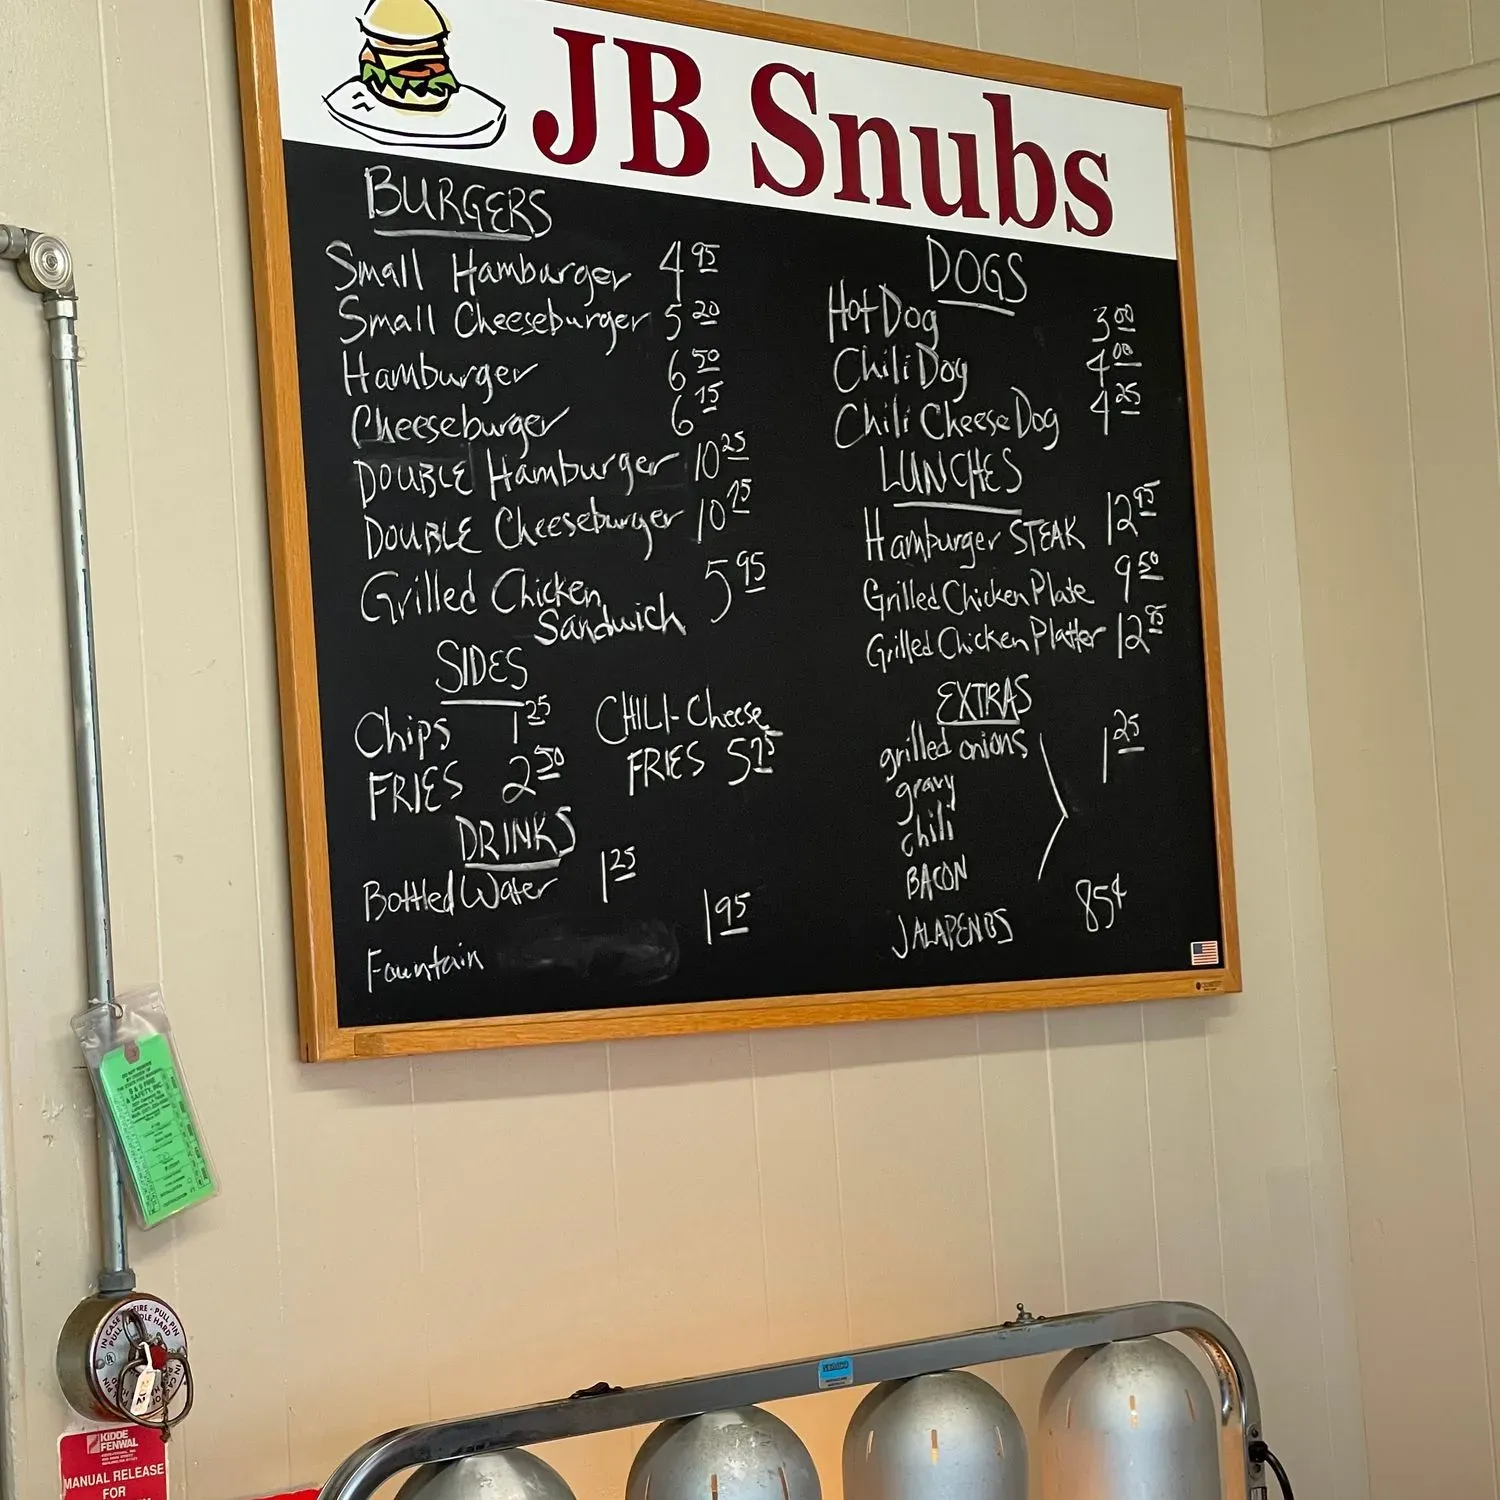 JB Snubs
BURGERS
Small Hamburger 4 95
Small Cheeseburger 5 20
Hamburger 6 50
Cheeseburger 6 75
DOUBLE Hamburger 10 25
DOUBLE Cheeseburger 10 75
Grilled Chicken 5 95
Sandwich
SIDES
Chips 1 25
FRIES 2 50
CHILI-Cheese
FRIES 5 75
DRINKS
Bottled Water 1 25
Fountain 1 95
DOGS
Hot Dog 3 00
Chili Dog 4 00
Chili Cheese Dog 4 25
LUNCHES
Hamburger STEAK 12 95
Grilled Chicken Plate 9 50
Grilled Chicken Platter 12 95
EXTRAS
grilled onions 1 25
gravy
chili
BACON
JALAPENOS 85¢
DO NOT REMOVE
B & B FIRE
& SAFETY, INC.
IN CASE OF FIRE - PULL PIN
PULL HANDLE HARD
KIDDE
FENWAL
MANUAL RELEASE
FOR